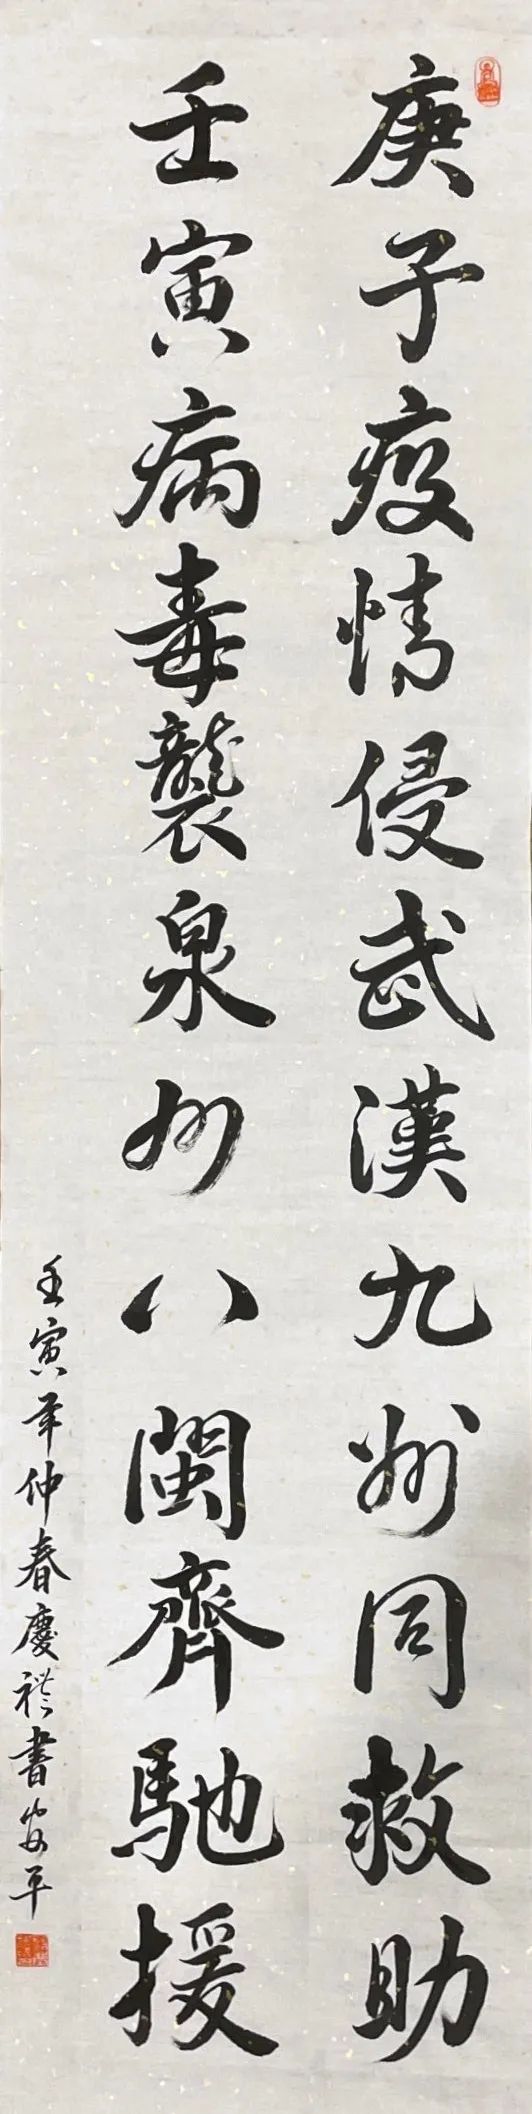 庚子疫情侵武漢九州同救助
壬寅病毒襲泉州八閩齊馳援
壬寅年仲春慶禮書安平